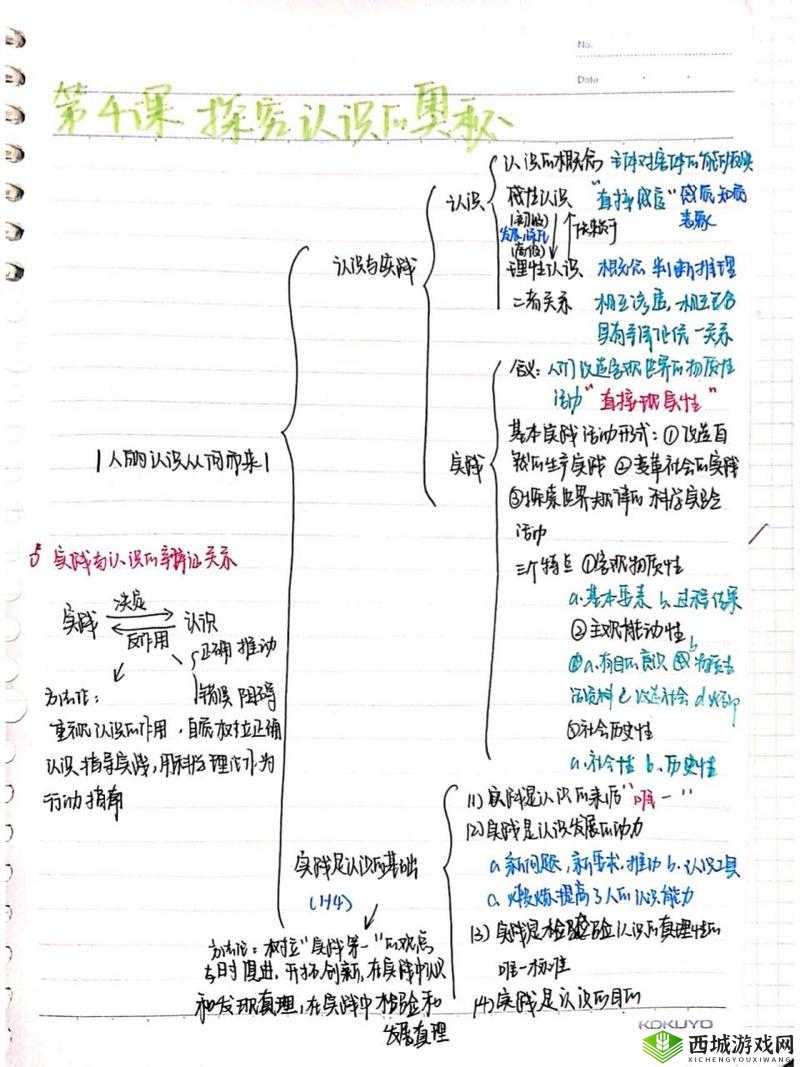 No.
Date
第4课 探究认识的奥秘
认识的概念 主体对客体的能动反映
认识
感性认识 "直接感官" 感质知觉
(初级)
(高级)
理性认识 概念 判断推理
二者关系 相互渗透,相互包含
具有辩证统一关系
认识与实践
含义:人们改造客观世界的物质性
活动"直接现实性"
实践
基本实践活动形式:①改造自
然的生产实践 ②变革社会的实践
③探索世界规律的科学实验
活动
三个特点 ①客观物质性
a.基本要素 b.过程结果
②主观能动性
a.有目的意识
c改造社会
③社会历史性
a.社会性 b.历史性
1人的认识从何而来1
实践与认识的辩证关系
决定
实践 认识
反作用
正确 推动
错误 阻碍
方法论:
重视认识的作用,自觉树立正确
认识指导实践,用科学理论作为
行动指南
实践是认识的基础
(1+4)
方法论:树立"实践第一"的观点
与时俱进,开拓创新,在实践中认识
和发现真理,在实践中检验和
发展真理
(1)实践是认识的来源"唯一"
(2)实践是认识发展的动力
a.新问题,新要求,推动 b.认识工具
c.锻炼提高了人的认识能力
(3)实践是检验认识的真理性的
唯一标准
(4)实践是认识的目的
KOKUYO
西城游戏网
XICHENGYOUXIWANG